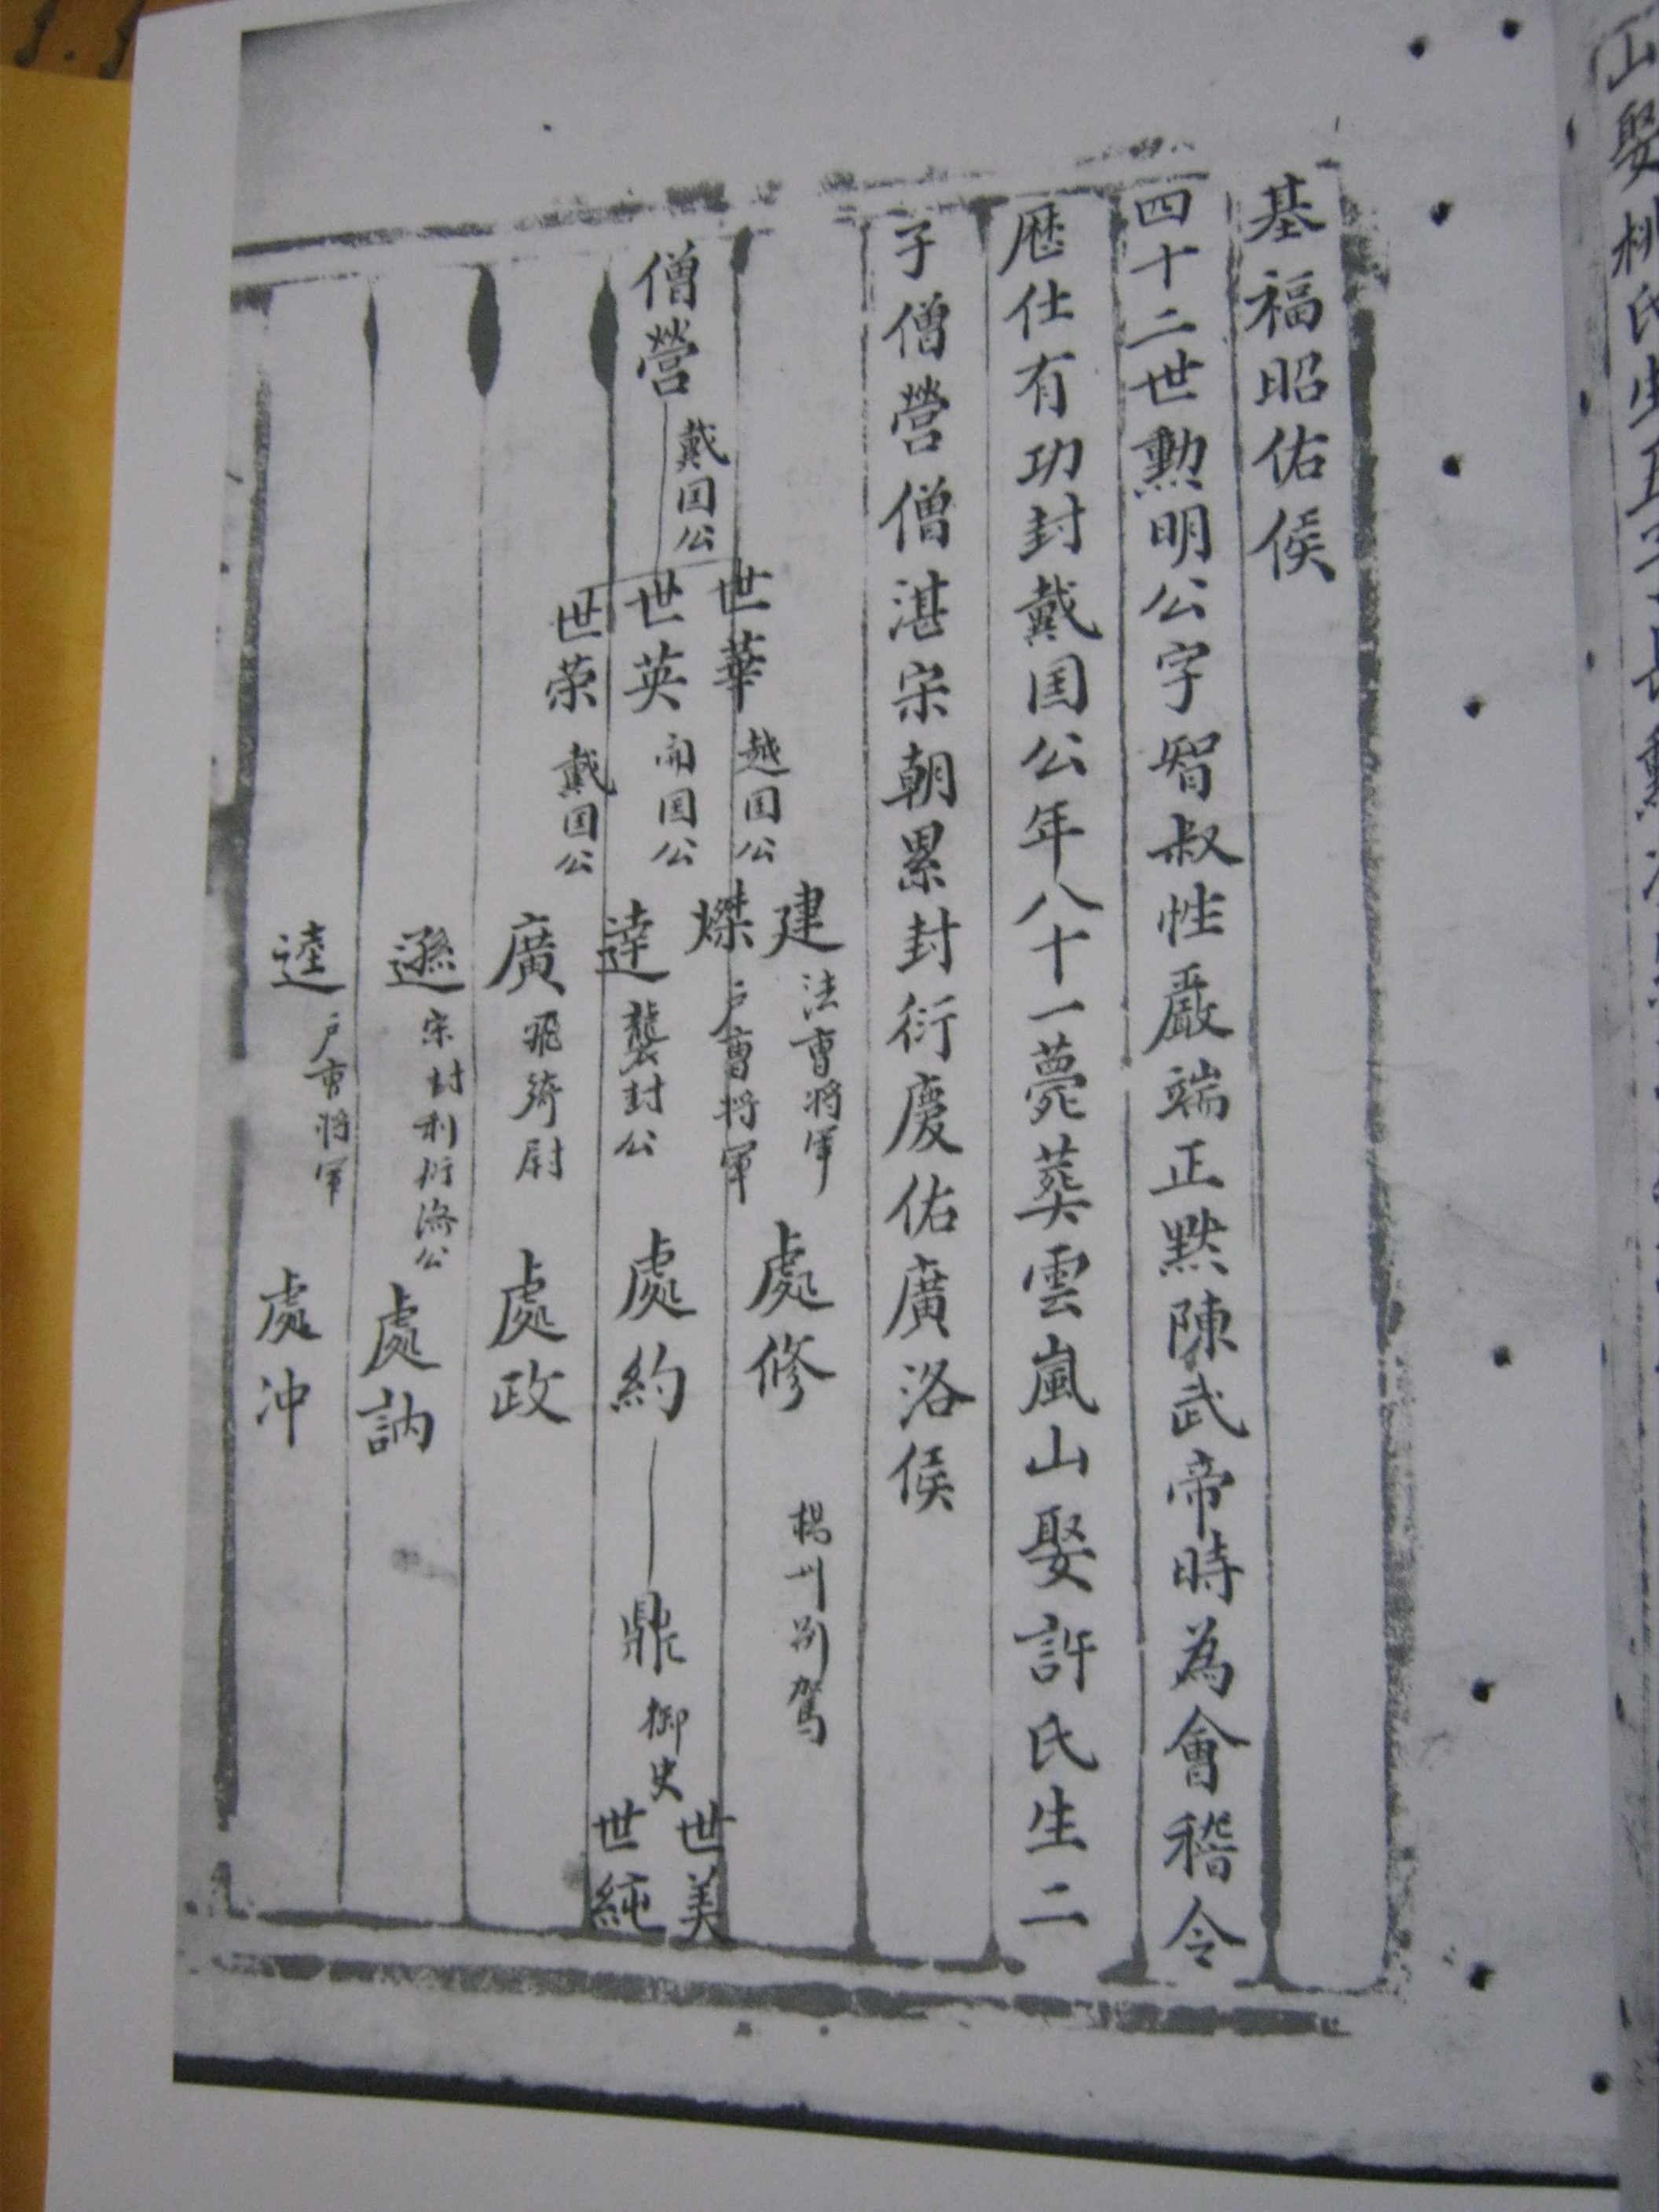 山娶桃氏生五子長勲
基福昭佑侯
四十二世勲明公字智叔性嚴端正黙陳武帝時為會稽令
歷仕有功封戴国公年八十一薨葬雲嵐山娶許氏生二
子僧營僧湛宋朝累封衍慶佑廣洛侯
僧營 戴国公
世華 越国公
世英 開国公
世荣 戴国公
建 法曹将軍
燦 户曹将軍
達 襲封公
廣 飛騎尉
遜 宋封利衍濟公
逵 户曹将軍
處修 楊州别駕
處約 鼎 御史
世美
世純
處政
處訥
處冲